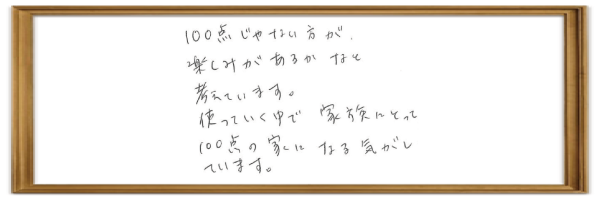 100点じゃない方が、
楽しみがあるかなと
考えています。
使っていく中で家族にとって
100点の家になる気がし
ています。